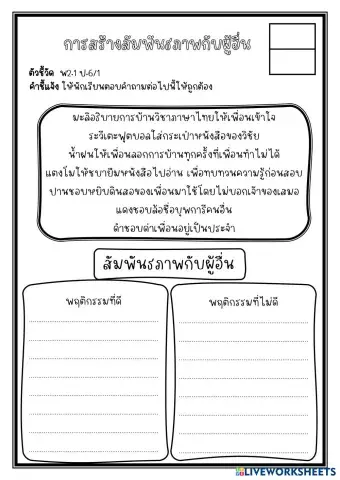 การสร้างสัมพันธภาพกับผู้อื่น
ตัวชี้วัด พ2-1 ป-6/1
คำชี้แจง ให้นักเรียนตอบคำถามต่อไปนี้ให้ถูกต้อง
มะลิอธิบายการบ้านวิชาภาษาไทยให้เพื่อนเข้าใจ
ระวีเตะฟุตบอลใส่กระเป๋าหนังสือของวิชัย
น้ำฝนให้เพื่อนลอกการบ้านทุกครั้งที่เพื่อนทำไม่ได้
แตงโมให้ชบายืมหนังสือไปอ่าน เพื่อทบทวนความรู้ก่อนสอบ
ปานชอบหยิบดินสอของเพื่อนมาใช้โดยไม่บอกเจ้าของเสมอ
แดงชอบล้อชื่อบุพการีคนอื่น
ดำชอบด่าเพื่อนอยู่เป็นประจำ
สัมพันธภาพกับผู้อื่น
พฤติกรรมที่ดี
พฤติกรรมที่ไม่ดี
LIVEWORKSHEETS